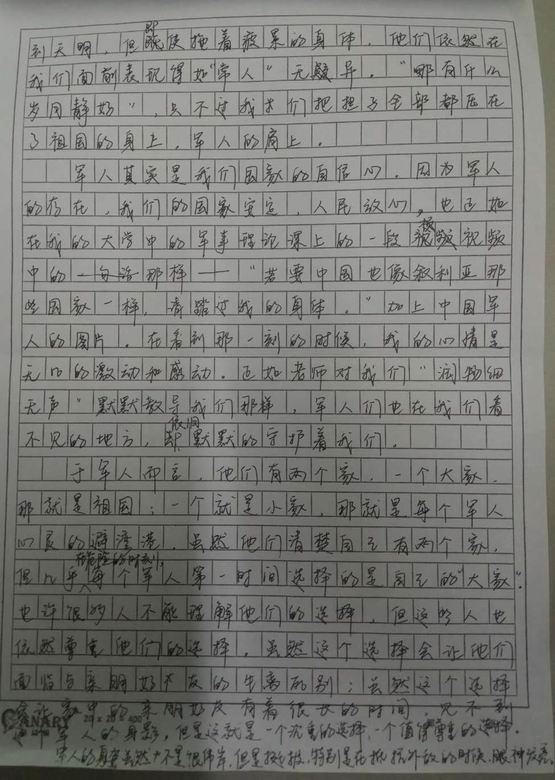 到天明，但即使拖着疲累的身体，他们依然在
我们面前表现得如"常人"无疑异。"哪有什么
岁月静好"，只不过我们把担子全部都压在
了祖国的身上，军人的肩上。
军人其实是我们国家的自信心，因为军人
的存在，我们的国家安定，人民放心，也正如
在我的大学中的军事理论课上的一段视频
中的一句话那样——"若要中国也像叙利亚那
些国家一样，请踏过我的身体。"加上中国军
人的图片，在看到那一刻的时候，我的心情是
无比的激动和感动。正如老师对我们"润物细
无声"默默教导我们那样，军人们也在我们看
不见的地方，依旧默默的守护着我们。
于军人而言，他们有两个家，一个大家，
那就是祖国；一个就是小家，那就是每个军人
心灵的避湾港，虽然他们清楚自己有两个家，
但几乎在危险的时刻，每个军人第一时间选择的是自己的"大家"。
也许很多人不能理解他们的选择，但这些人也
依然尊重他们的选择，虽然这个选择会让他们
面临与亲朋好友的生离死别；虽然这个选择
会让家中的亲朋好友有着很长的时间，见不到
军人的身影，但是这就是一个沉重的选择，一个值得尊重的选择。
军人的身姿虽然不是很伟岸，但是挺拔，特别是在抵抗外敌的时候，眼神发亮
CANARY